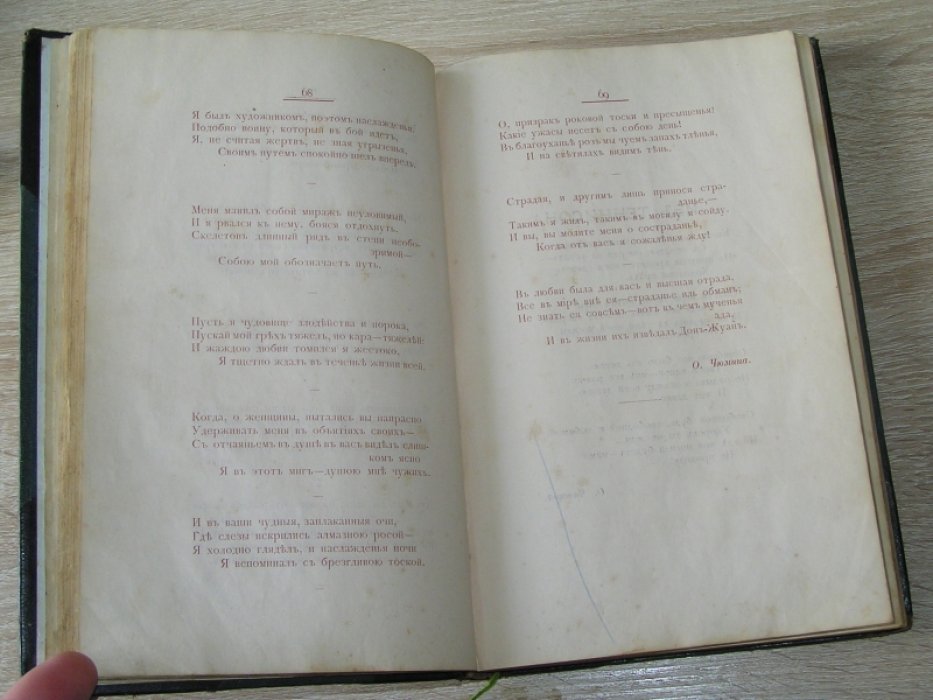 68
Я былъ художникомъ, поэтомъ наслажденья,
Подобно воину, который въ бой идетъ,
Я, не считая жертвъ, не зная угрызенья,
Своимъ путемъ спокойно шелъ впередъ.
Меня манилъ собой миражъ неуловимый,
И я рвался къ нему, бояся отдохнуть.
Скелетовъ длинный рядъ въ степи необо-
зримой—
Собою мой обозначаетъ путь.
Пусть я чудовище злодѣйства и порока,
Пускай мой грѣхъ тяжелъ, но кара—тяжелѣй:
И жаждою любви томился я жестоко,
Я тщетно ждалъ въ теченье жизни всей.
Когда, о женщины, пытались вы напрасно
Удерживать меня въ объятіяхъ своихъ—
Съ отчаяньемъ въ душѣ въ васъ видѣлъ слиш-
комъ ясно
Я въ этотъ мигъ—душою мнѣ чужихъ.
И въ ваши чудныя, заплаканныя очи,
Гдѣ слезы искрились алмазною росой—
Я холодно глядѣлъ, и наслажденья ночи
Я вспоминалъ съ брезгливою тоской.
69
О, призракъ роковой тоски и пресыщенья!
Какіе ужасы несетъ съ собою день!
Въ благоуханьѣ розъ мы чуемъ запахъ тлѣнья,
И на свѣтилахъ видимъ тѣнь.
Страдая, и другимъ лишь принося стра-
данье,—
Такимъ я жилъ, такимъ въ могилу я сойду.
И вы, вы молите меня о состраданьѣ,
Когда отъ васъ я сожалѣнья жду!
Въ любви была для васъ и высшая отрада,
Все въ мірѣ внѣ ея—страданье иль обманъ;
Не знать ея совсѣмъ—вотъ въ чемъ мученья
ада,
И въ жизни ихъ извѣдалъ Донъ-Жуанъ.
О. Чюмина.